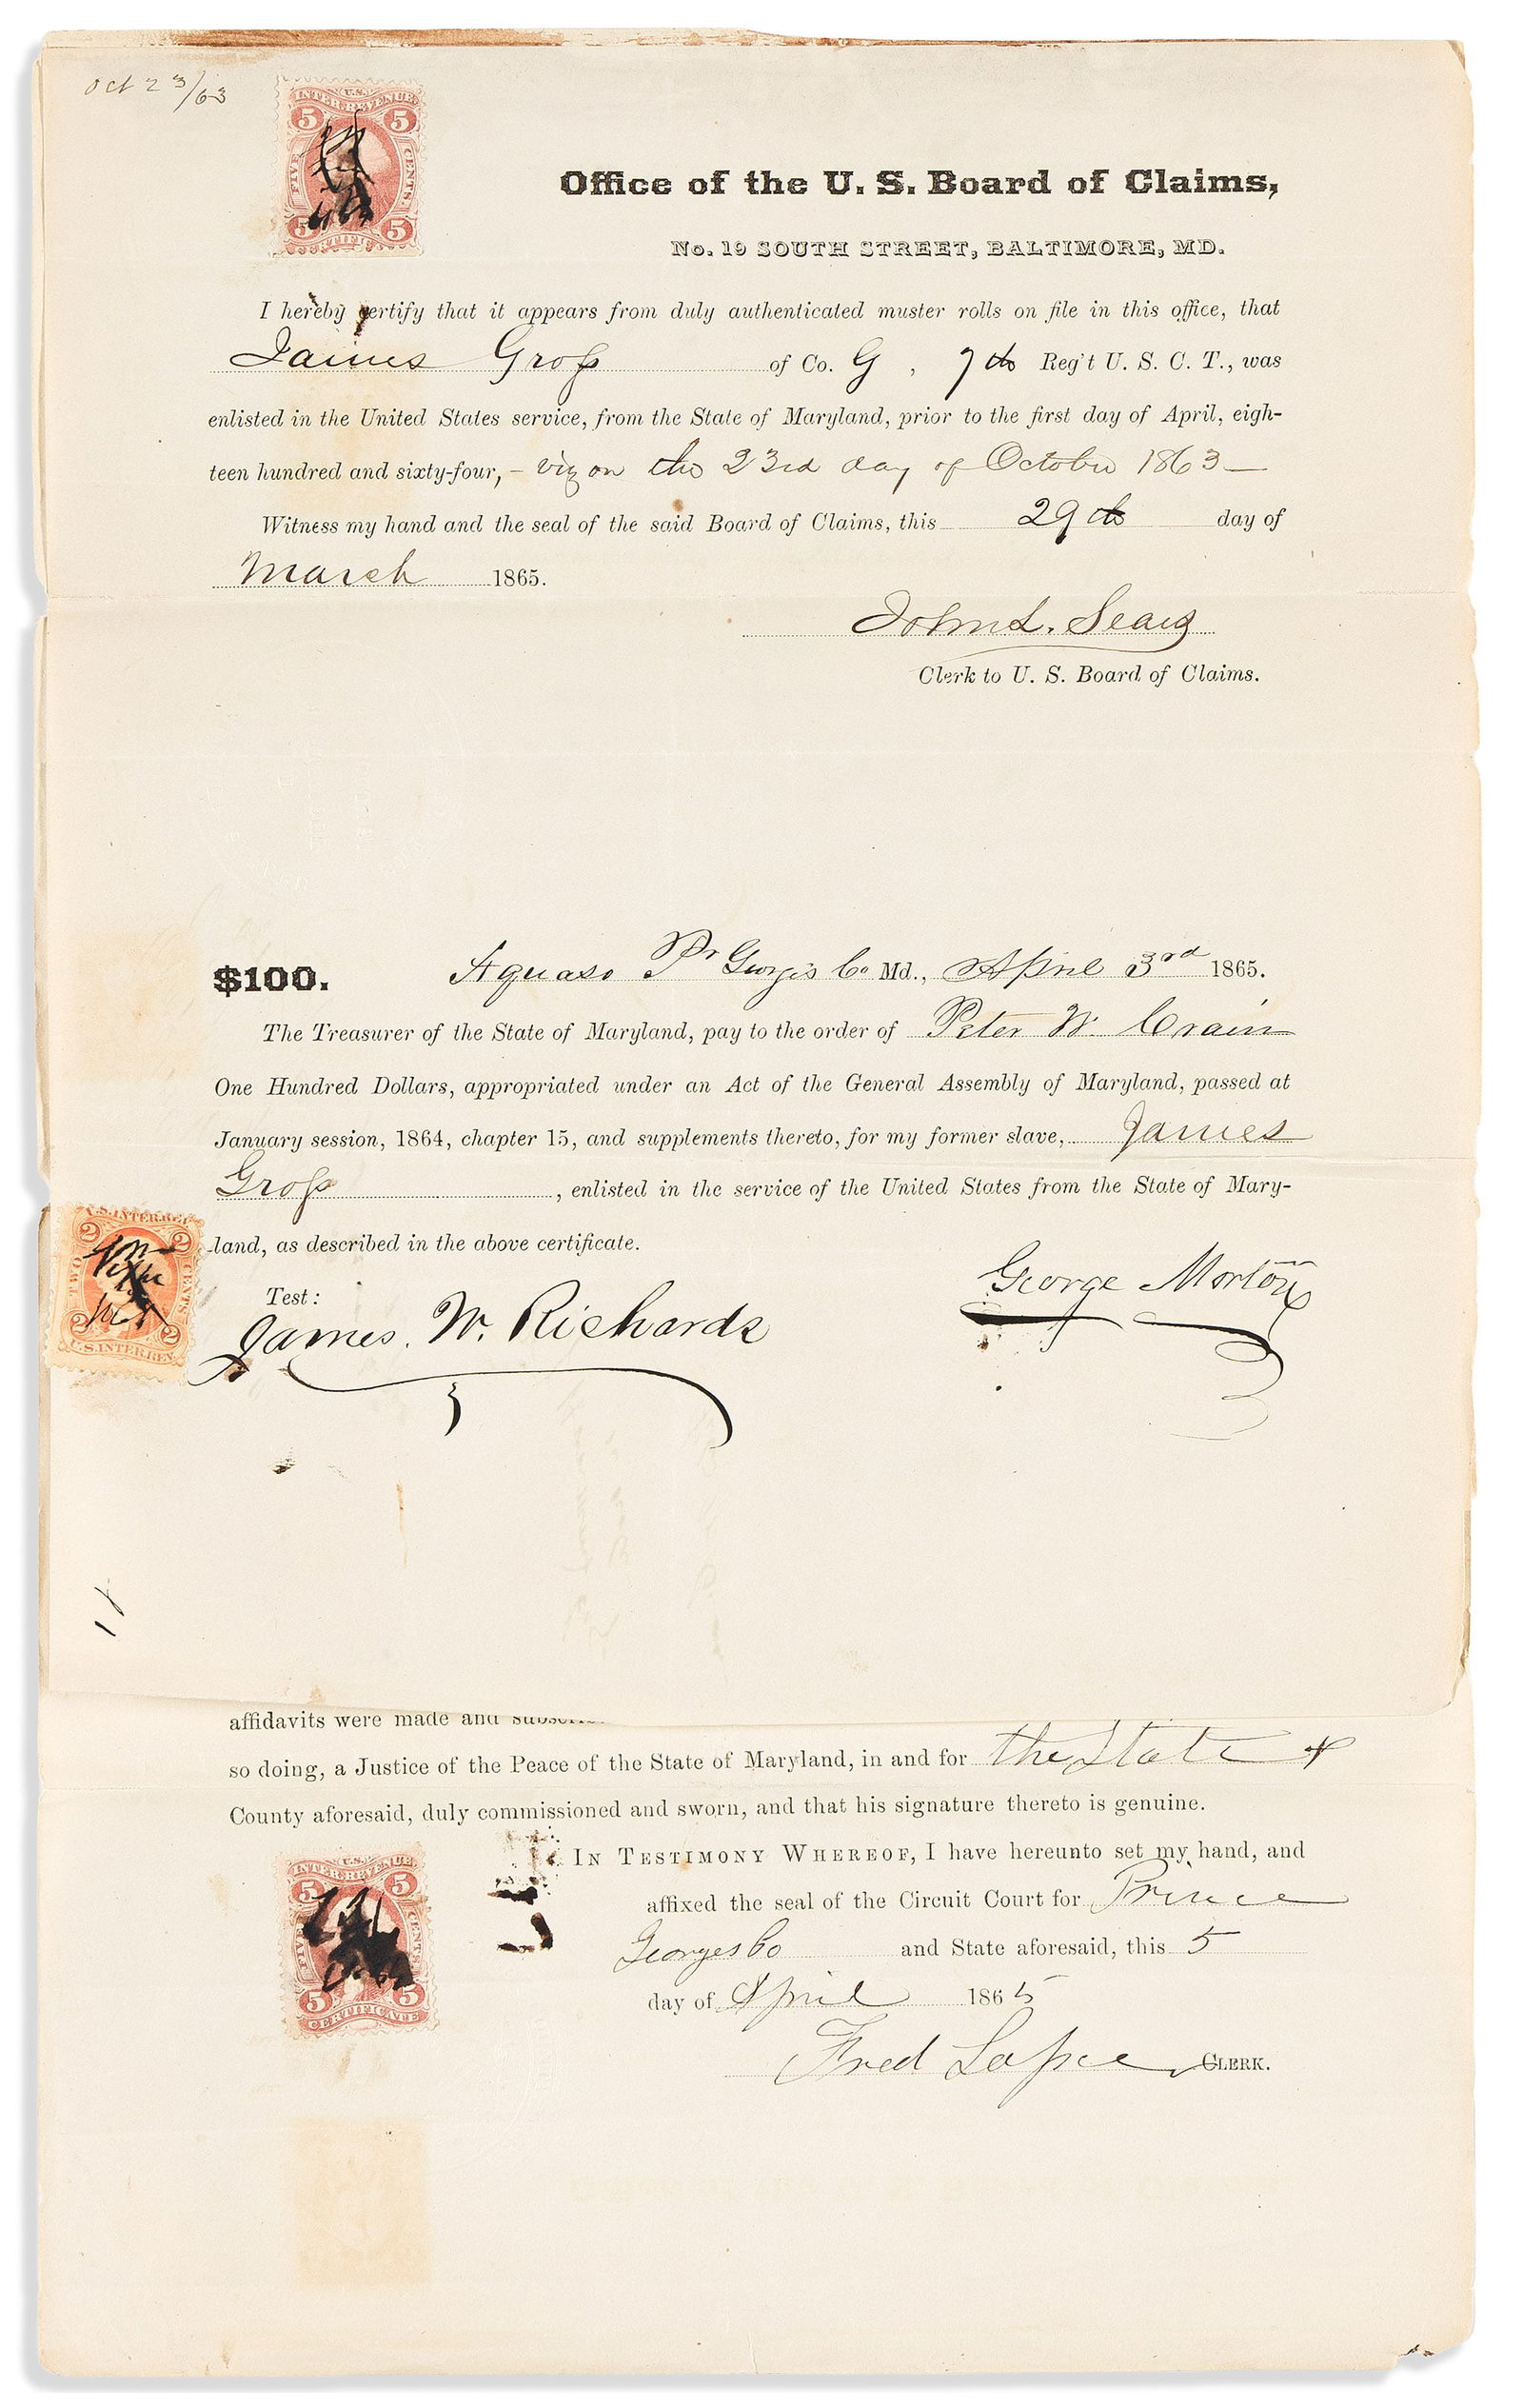 Oct 23/63
U.S.
INTER. REVENUE
5 5
FIVE CENTS
5 5
CERTIFIC
Office of the U. S. Board of Claims,
No. 19 SOUTH STREET, BALTIMORE, MD.
I hereby certify that it appears from duly authenticated muster rolls on file in this office, that
James Groſs of Co. G, 7th Reg't U. S. C. T., was
enlisted in the United States service, from the State of Maryland, prior to the first day of April, eigh-
teen hundred and sixty-four, – viz on the 23rd day of October 1863 –
Witness my hand and the seal of the said Board of Claims, this 29th day of
March 1865.
John L. Sears
Clerk to U. S. Board of Claims.
$100. Aquaso Pr Georges Co Md., April 3rd 1865.
The Treasurer of the State of Maryland, pay to the order of Peter W. Crain
One Hundred Dollars, appropriated under an Act of the General Assembly of Maryland, passed at
January session, 1864, chapter 15, and supplements thereto, for my former slave, James
Groſs, enlisted in the service of the United States from the State of Mary-
land, as described in the above certificate.
U.S. INTER. REV
2 2
TWO CENTS
2 2
U.S. INTER. REV.
George Morton
Test:
James. W. Richards
affidavits were made and
so doing, a Justice of the Peace of the State of Maryland, in and for the State &
County aforesaid, duly commissioned and sworn, and that his signature thereto is genuine.
U.S.
INTER. REVENUE
5 5
FIVE CENTS
5 5
CERTIFICATE
In Testimony Whereof, I have hereunto set my hand, and
affixed the seal of the Circuit Court for Prince
Georges Co and State aforesaid, this 5
day of April 1865
Fred Sasscer Clerk.